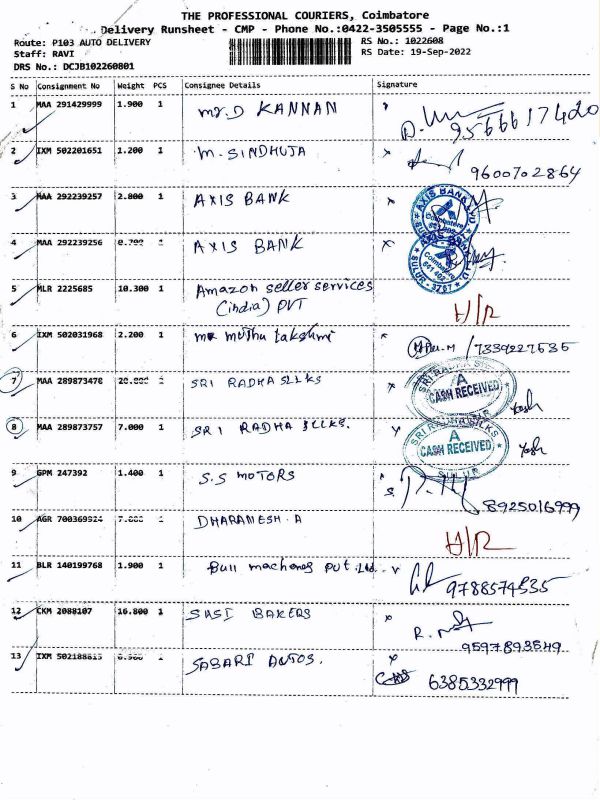 THE PROFESSIONAL COURIERS, Coimbatore
Delivery Runsheet - CMP - Phone No.:0422-3505555 - Page No.:1
Route: P103 AUTO DELIVERY RS No.: 1022608
Staff: RAVI RS Date: 19-Sep-2022
DRS No.: DCJB102260801
S No Consignment No Weight PCS Consignee Details Signature
1 MAA 291429999 1.900 1 Mr.D KANNAN
9566617420
2 IXM 502201651 1.200 1 M. SINDHUJA
9600702864
3 MAA 292239257 2.800 1 AXIS BANK
4 MAA 292239256 1 AXIS BANK
5 MLR 2225685 10.300 1 Amazon seller services
(india) PVT H/R
6 IXM 502031968 2.200 1 muthu lakshmi
7339227535
7 MAA 289873478 SRI RADHA SILKS
SRI RADHA SILKS A CASH RECEIVED SULUR Yash
8 MAA 289873757 7.000 1 SRI RADHA SILKS.
SRI RADHA SILKS A CASH RECEIVED SULUR Yash
9 GPM 247392 1.400 1 S.S MOTORS
8925016999
10 AGR 700369924 DHARANESH.A H/R
11 BLR 140199768 1.900 1 Bull machenes PVT.Ltd.
9788574535
12 CKM 2088107 16.800 1 SASI BAKERS
9597893549
13 IXM SABARI AUTOS.
6385332999